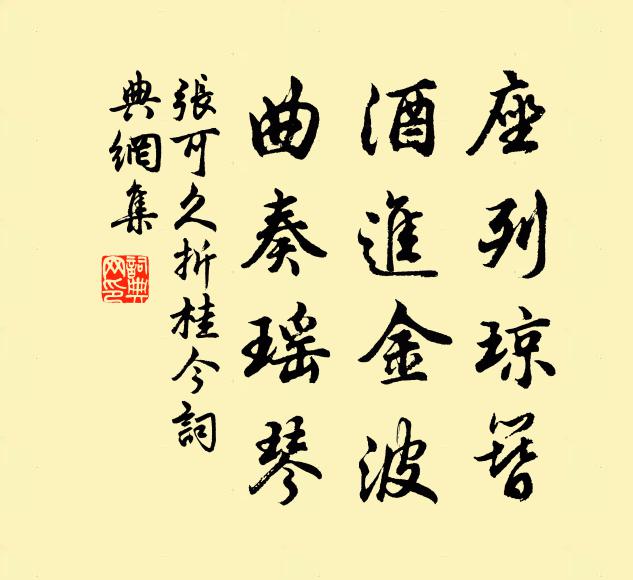 座列琼簪
酒進金波
曲奏瑶琴
張可久折桂令詞
典網集
詞典網印